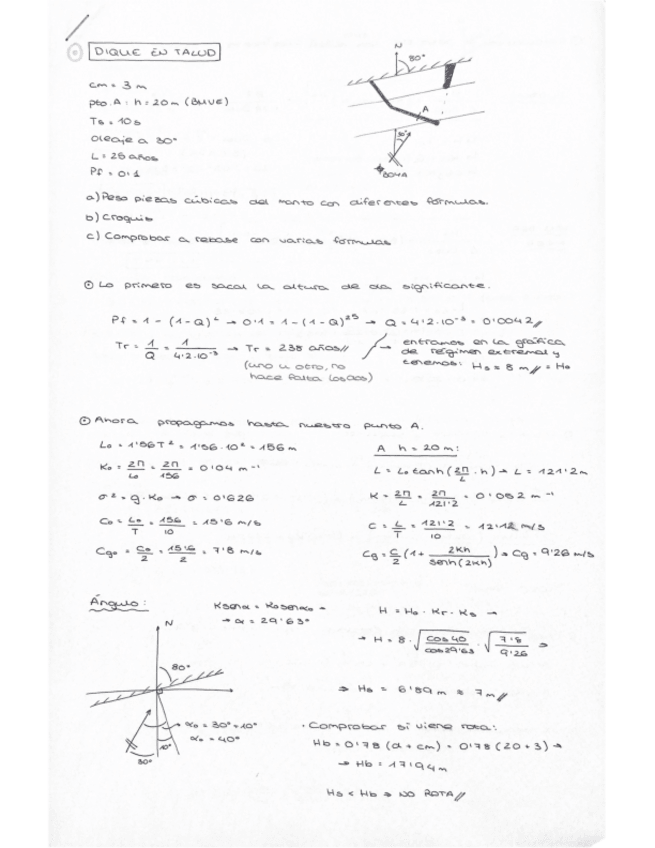 DIQUE EN TALUD
cm = 3 m
pto. A: h = 20 m (BMVE)
Ts = 10 s
Oleaje a 30°
L = 25 años
Pf = 0'1
N
80°
A
30°
BOYA
a) Peso piezas cúbicas del manto con diferentes fórmulas.
b) Croquis
c) Comprobar a rebase con varias fórmulas
Lo primero es sacal la altura de ola significante.
Pf = 1 - (1-Q)^L → 0'1 = 1 - (1-Q)^25 → Q = 4'2·10^-3 = 0'0042 //
Tr = 1/Q = 1/4'2·10^-3 → Tr = 238 años //
(uno u otro, no hace falta los dos)
entramos en la gráfica
de régimen extremal y
tenemos: Hs = 8 m // = Ho
Ahora propagamos hasta nuestro punto A.
Lo = 1'56T² = 1'56·10² = 156 m
Ko = 2π/Lo = 2π/156 = 0'04 m^-1
σ² = g·Ko → σ = 0'626
Co = Lo/T = 156/10 = 15'6 m/s
Cgo = Co/2 = 15'6/2 = 7'8 m/s
A h = 20 m:
L = Lo tanh(2π/L · h) → L = 121'2 m
K = 2π/L = 2π/121'2 = 0'052 m^-1
C = L/T = 121'2/10 = 12'12 m/s
Cg = C/2 (1 + 2Kh/senh(2Kh)) → Cg = 9'26 m/s
Ángulo:
K senα = Ko senαo →
→ α = 29'63°
H = Ho · Kr · Ks →
→ H = 8 · √(cos 40/cos 29'63) · √(7'8/9'26) ⇒
⇒ Hs = 6'89 m ≈ 7 m //
N
80°
αo = 30° + 10°
αo = 40°
10°
30°
· Comprobar si viene rota:
Hb = 0'78 (d + cm) = 0'78 (20 + 3) →
→ Hb = 17'94 m
Hs < Hb ⇒ NO ROTA //